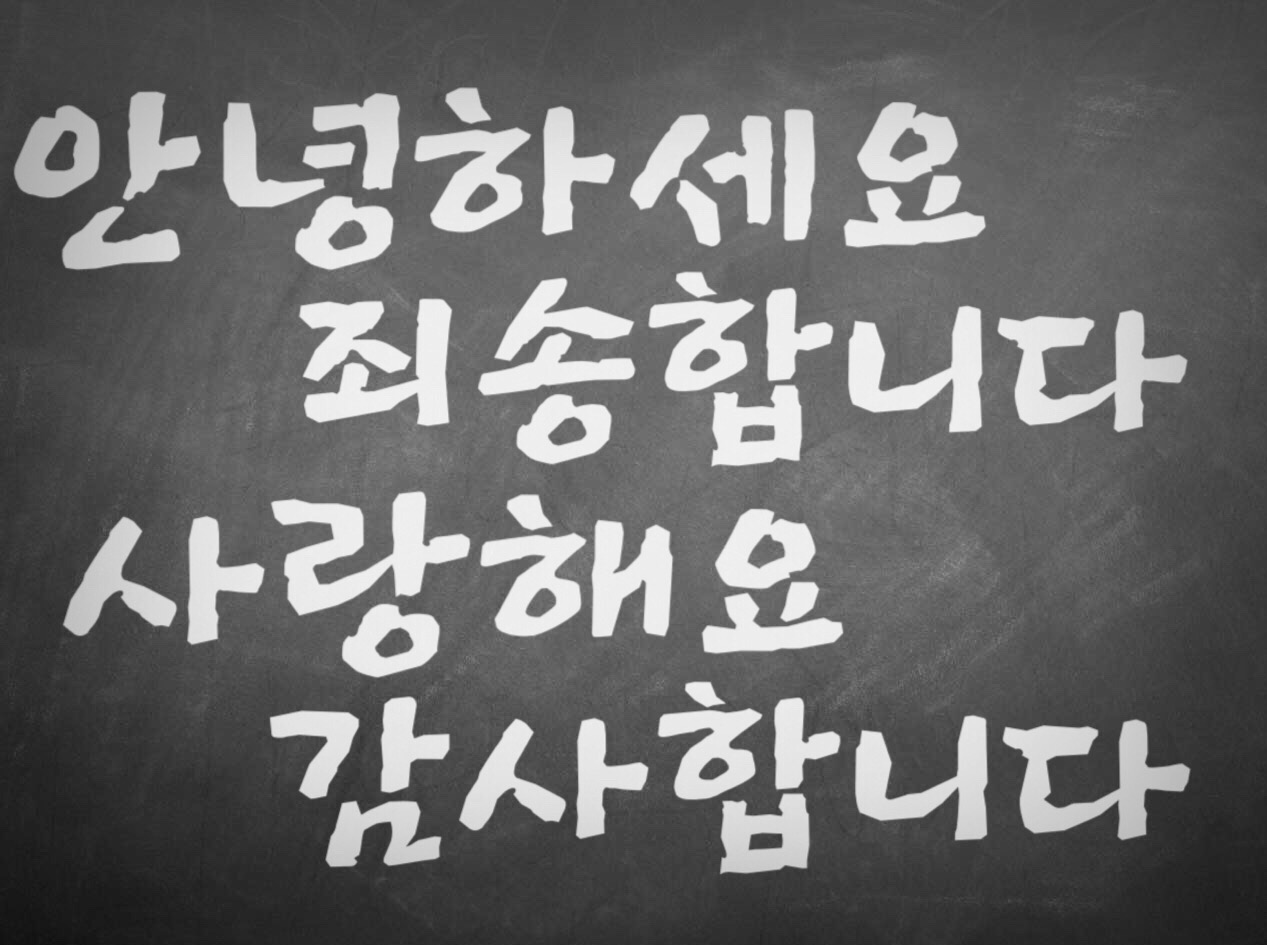 안녕하세요
죄송합니다
사랑해요
감사합니다